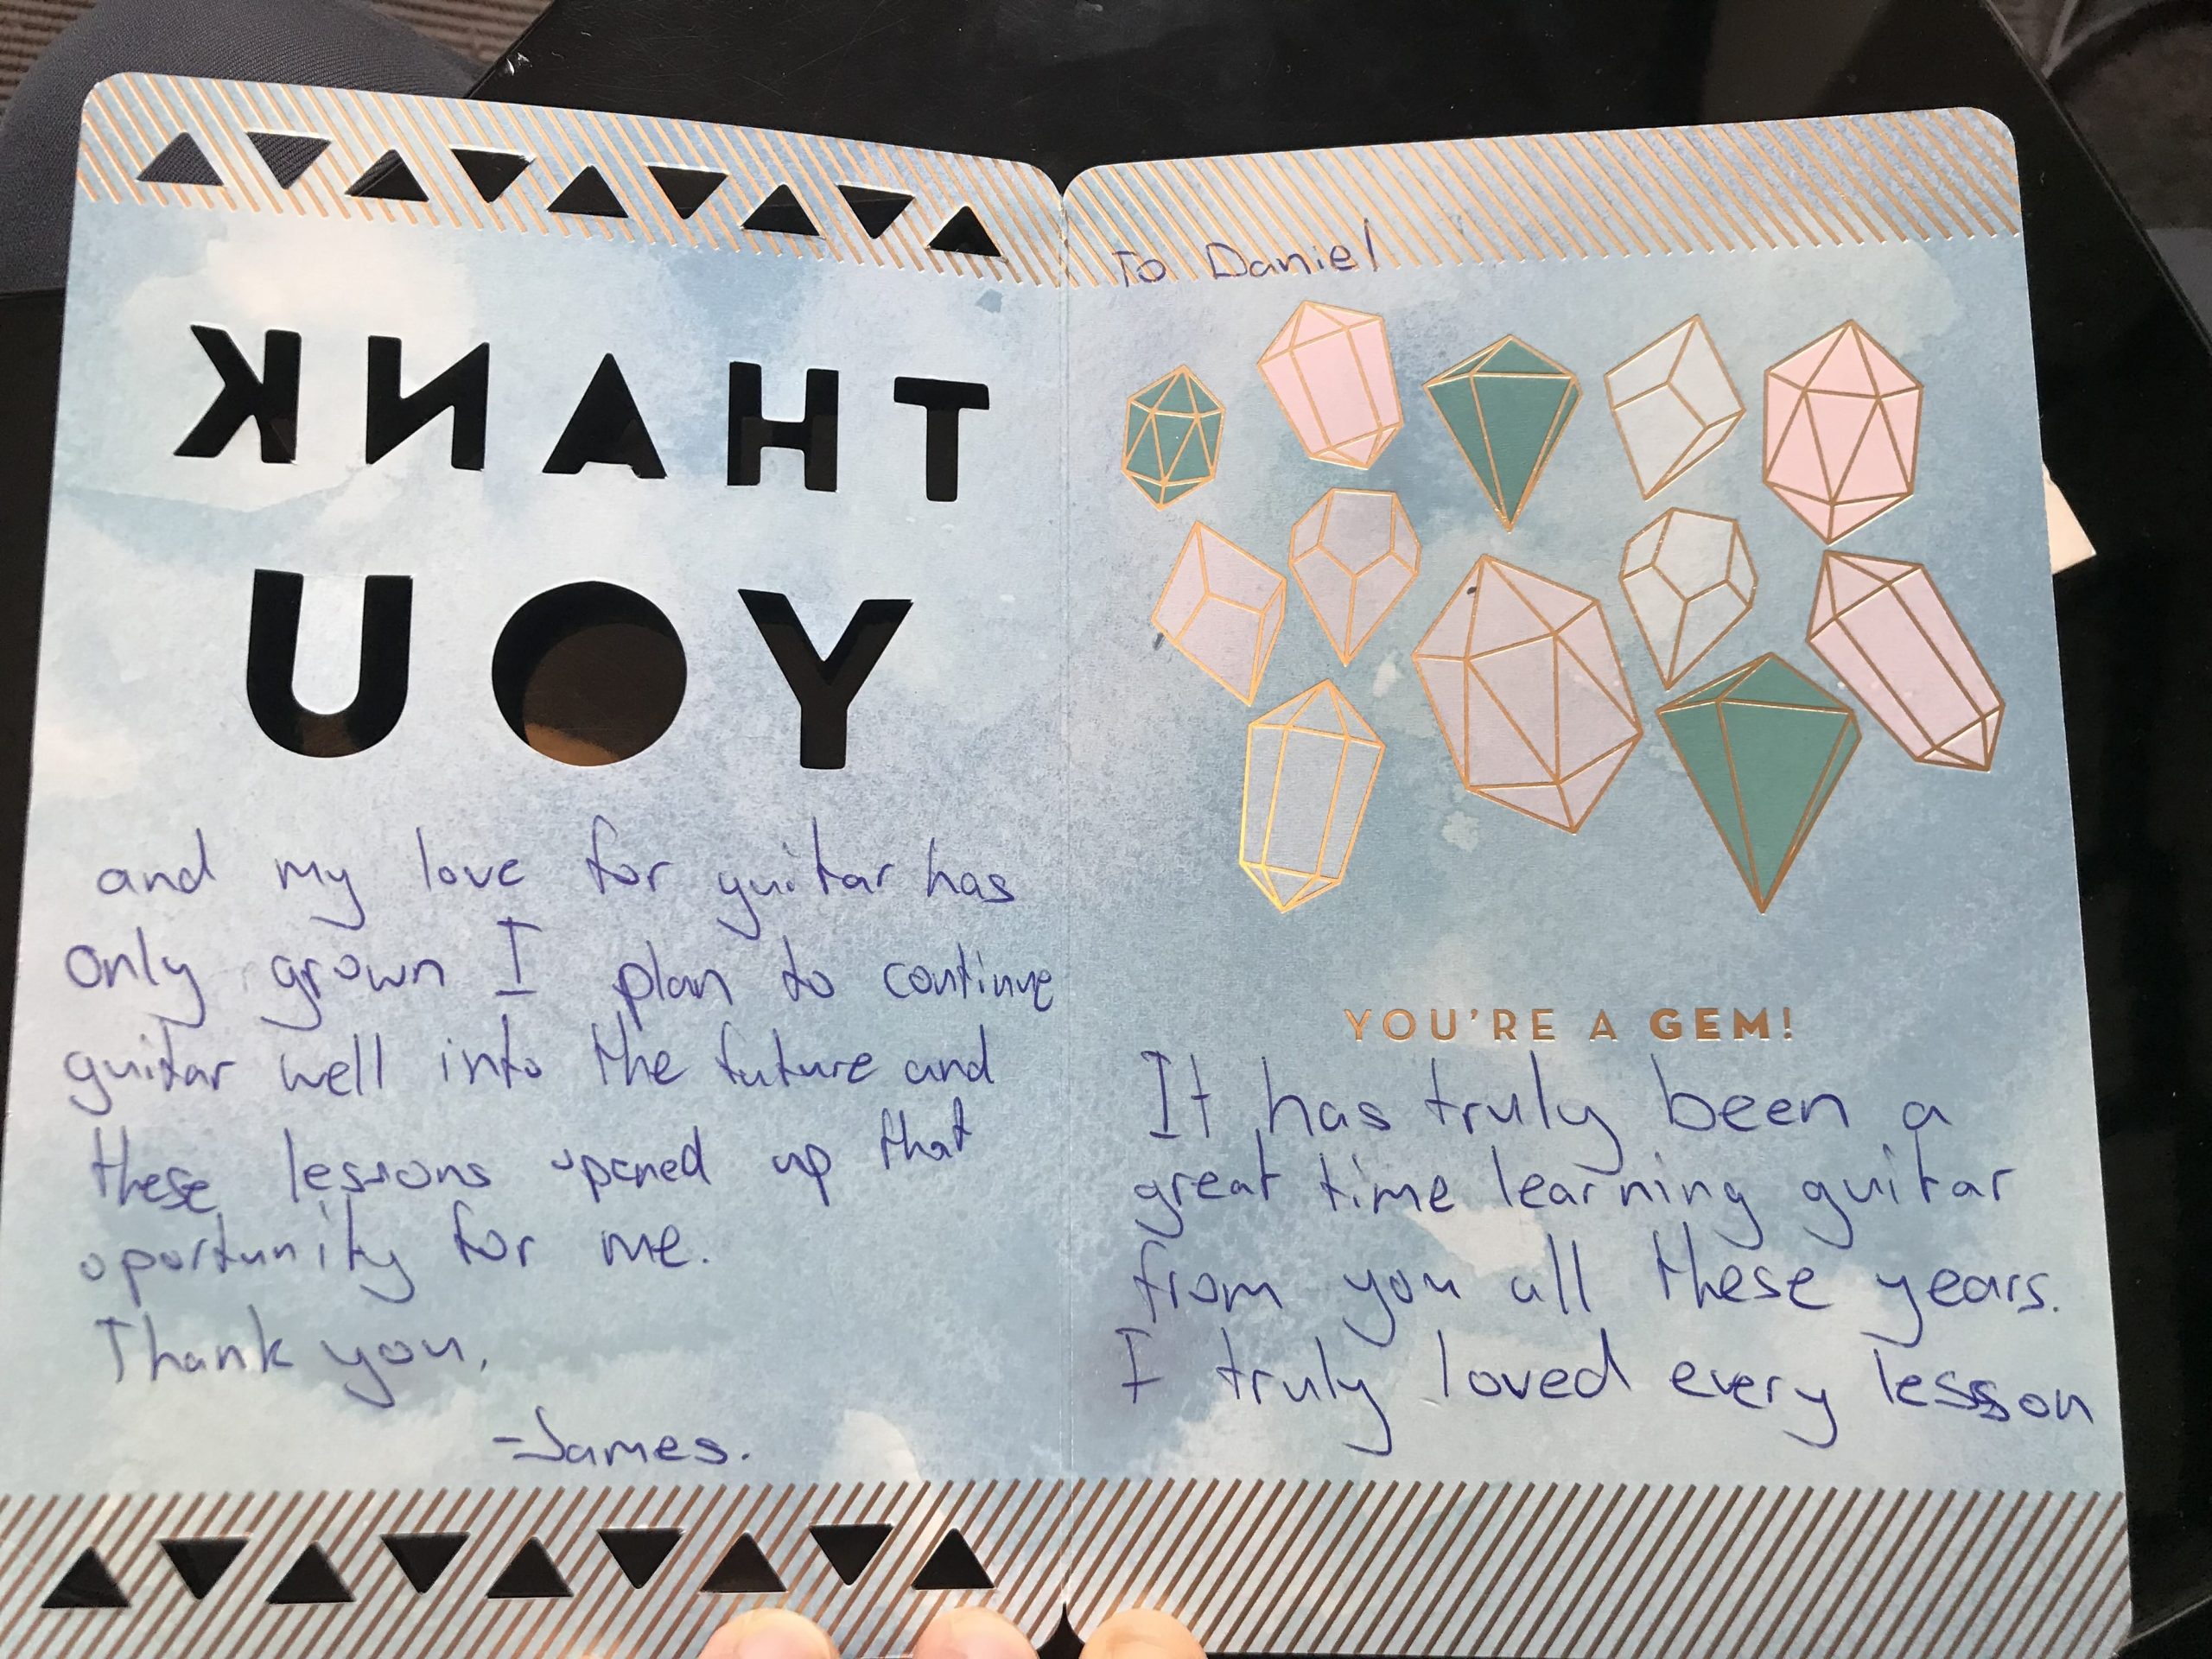 THANK
YOU
To Daniel
YOU'RE A GEM!
It has truly been a
great time learning guitar
from you all these years.
I truly loved every lesson
and my love for guitar has
only grown I plan to continue
guitar well into the future and
these lessons opened up that
oportunity for me.
Thank you,
-James.